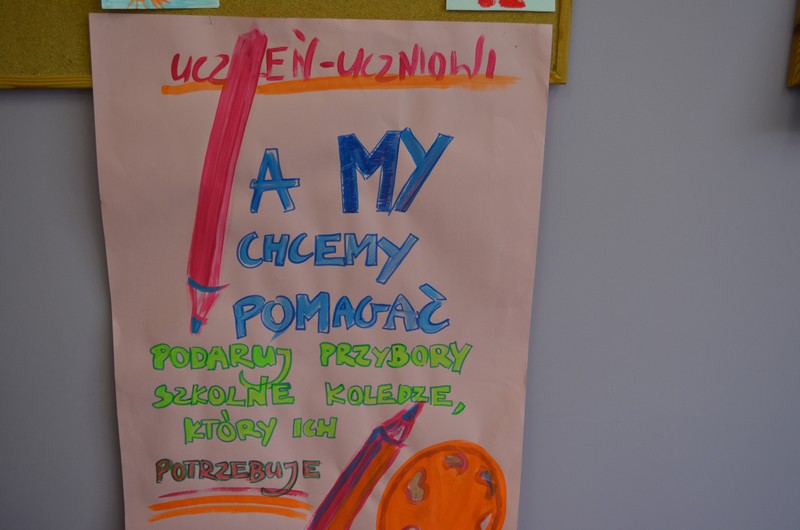 UCZEŃ-UCZNIOWI
A MY
CHCEMY
POMAGAĆ
PODARUJ PRZYBORY
SZKOLNE KOLEDZE,
KTÓRY ICH
POTRZEBUJE